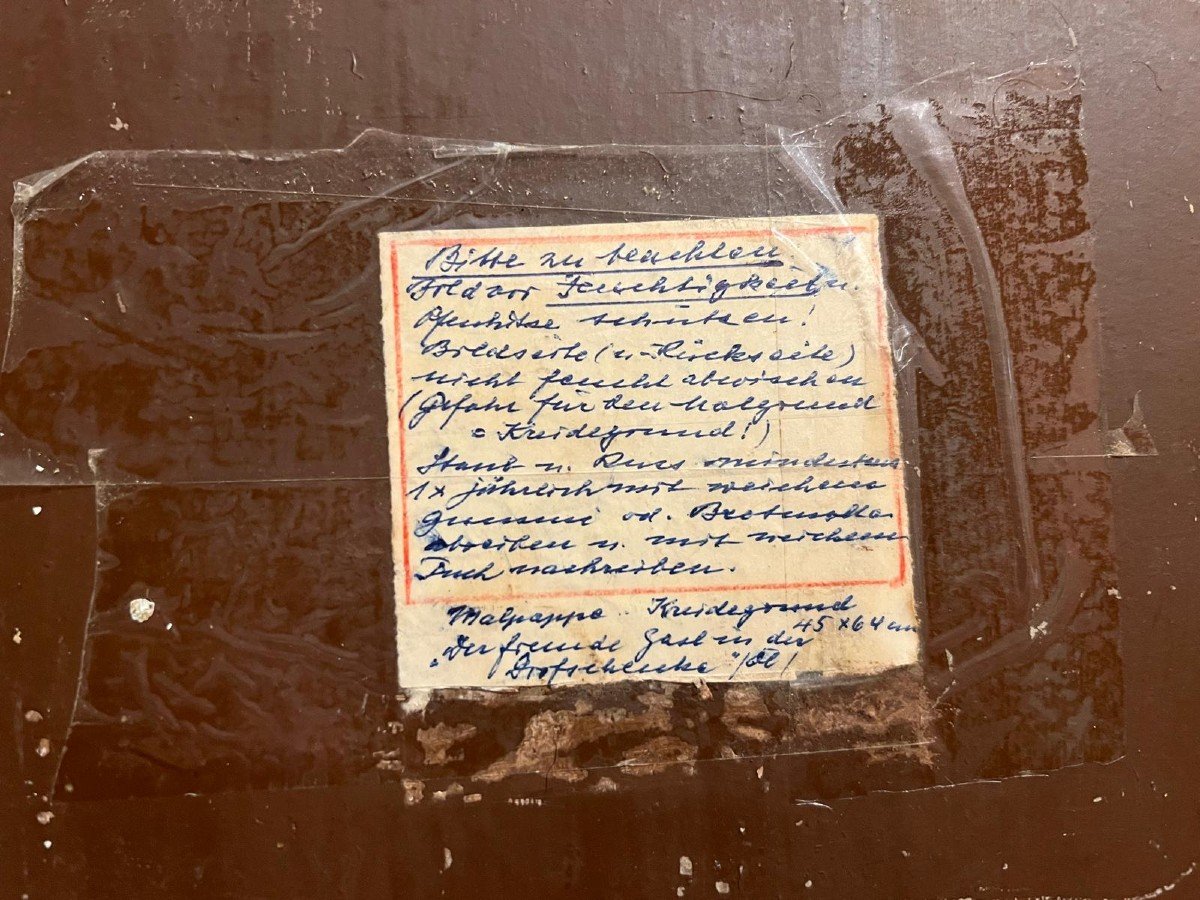 Bitte zu beachten
Bild vor Feuchtigkeit u.
Ofenhitze schützen!
Bildseite (u. Rückseite)
nicht feucht abwischen
(Gefahr für den Malgrund
= Kreidegrund!)
Staub u. Russ mindestens
1x jährlich mit weichem
Gummi od. Brot
abreiben u. mit weichem
Tuch nachreiben.
Malpappe Kreidegrund
45 x 64 cm
"Der fremde Gast in der
Dorfschenke" /Öl/